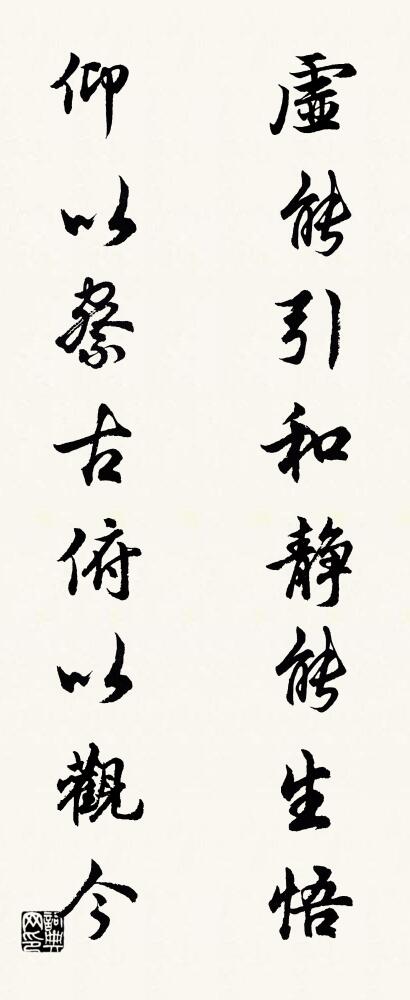 虛能引和静能生悟
仰以察古俯以觀今